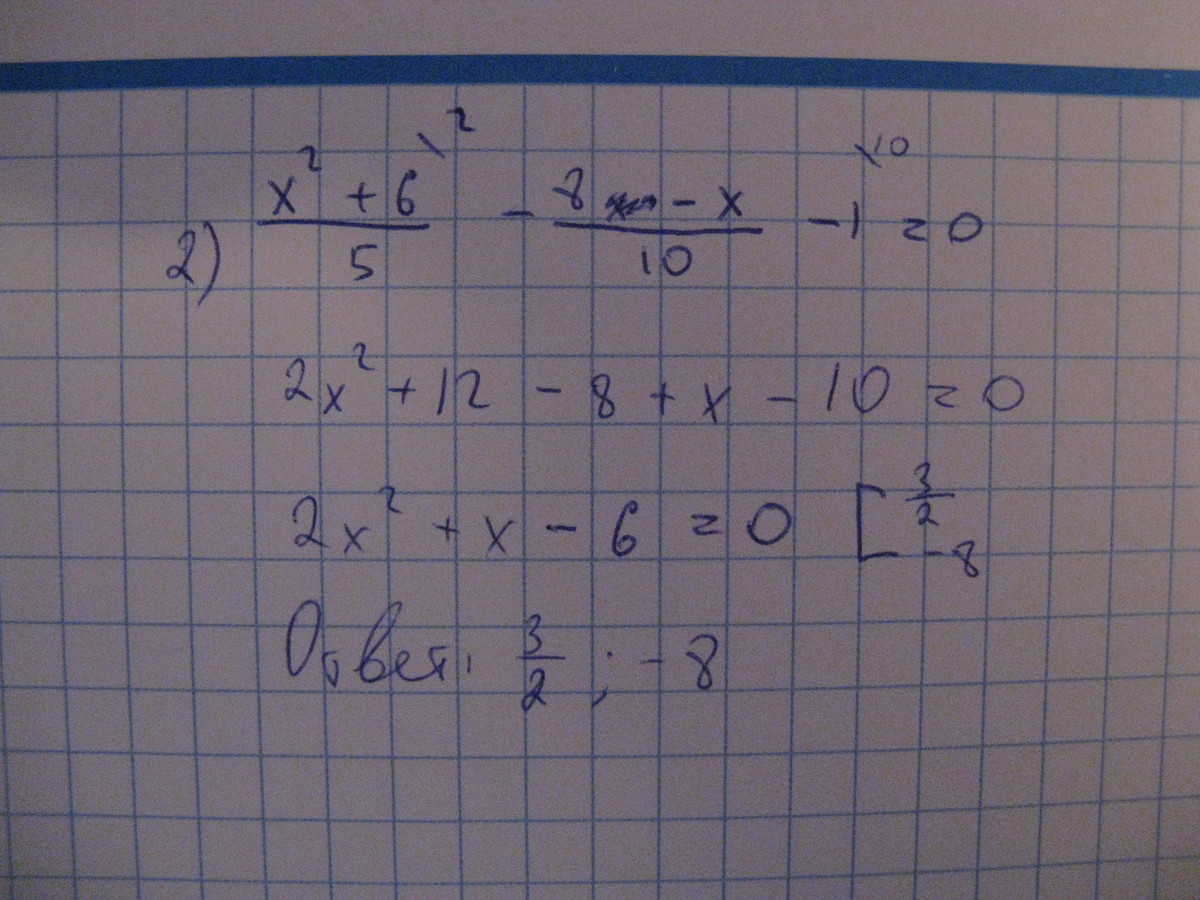 2) (x² + 6)/5 \2 - (8 - x)/10 - 1 \10 = 0
2x² + 12 - 8 + x - 10 = 0
2x² + x - 6 = 0 [ 3/2 -8
Ответ: 3/2 ; -8